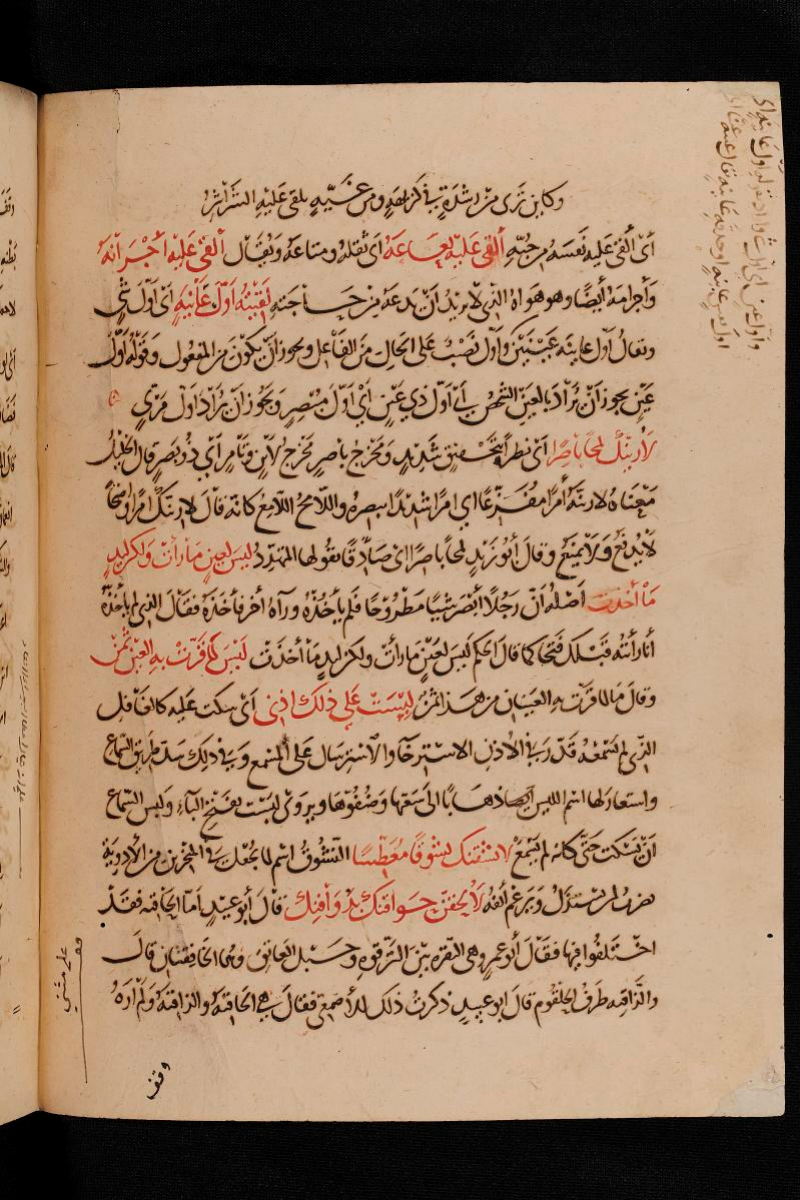 وكاين ترى من رشدة في كريهة ومن غية يلقى عليه الشراشر
أي ألقى عليه نفسه من حبه ألقى عليه بعاعه أي ثقله ومتاعه ويقال ألقى عليه أجرانه
وأجرامه أيضا وهو هواه الذي لا يريد أن يدعه من حاجته لقيته أول عائنة أي أول شي
ويقال أول عاينة عينين وأول نصب على الحال من الفاعل ويجوز أن يكون من المفعول وقوله أول
عين يجوز أن يراد بالعين الشخص أي أول ذي عين أي أول مبصر ويجوز أن يراد أول مرئي
لأرينك لمحا باصرا أي نظرا بتحديق شديد ومخرج باصر مخرج لابن وتامر أي ذو بصر قال الخليل
معناه لارينه أمرا مفزعا اي امرا شديدا يبصره واللامح اللامع كانه قال لارينك امرا واضحا
لا يدفع ولا يمنع وقال أبو زيد لمحا باصرا اي صادقا يقولها المتهدد ليس لعين ما رأت ولكن ليد
ما أخذت أصله أن رجلا أبصر شيا مطروحا فلم يأخذه ورآه آخر فأخذه فقال الذي لم يأخذه
أنا رأيته قبلك فتحاكما فقال الحكم ليس لعين ما رأت ولكن ليد ما أخذت ليس لما قرت به العين ثمن
وقال ما لما قرت به العينان من هذا ثمن لبست على ذلك أذني أي سكت عليه كالغافل
الذي لم يسمعه قدر في الأذن الاسترخاء والاسترسال على المسمع وفي ذلك سد طريق السماع
واستعار لها اسم اللبس ايضا ذهابا الى سعتها وضفوها ويروى لبست بفتح الباء ولبس السماع
أن يسكت حتى كانه لم يسمع لأنشقنك نشوقا معطسا النشوق اسم لما يجعل في المنخرين من الأدوية
يضرب لمن يستذل ويرغم أنفه لألحقن حواقنك بذواقنك قال أبو عبيد أما الحاقنة فقد
اختلفوا فيها فقال أبو عمرو هي النقرة بين الترقوة وحبل العاتق وهما الحاقنتان قال
والذاقنة طرف الحلقوم قال ابو عبيد ذكرت ذلك للأصمعي فقال هي الحاقنة والذاقنة ولم أره
وقف